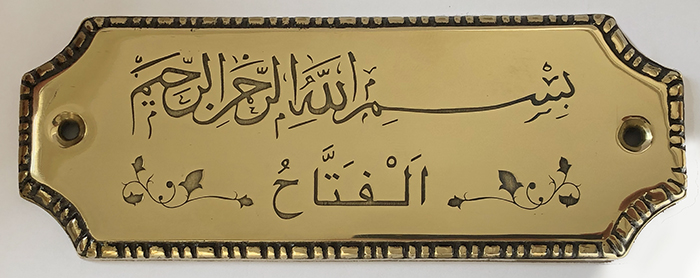 بِسْمِ اللَّهِ الرَّحْمَنِ الرَّحِيمِ
اَلْفَتَّاحُ